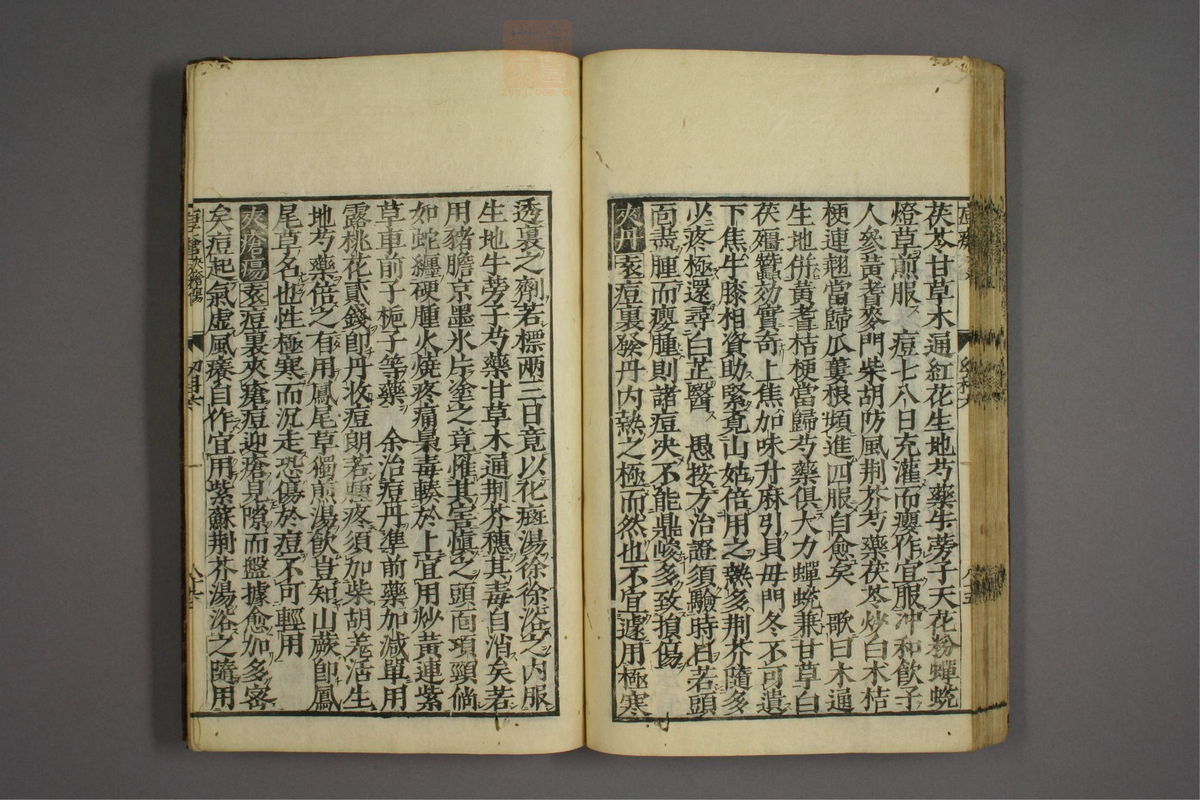 茯苓甘草木通紅花生地芍藥牛蒡子天花粉蟬蛻
燈草煎服 痘七八日充灌而癭作宜服冲和飲子
人參黃耆麥門柴胡防風荆芥芍藥茯苓炒白木桔
梗連翹當歸瓜蔞根頻進四服自愈矣 歌曰木通
生地併黃耆桔梗當歸芍藥俱大力蟬蛻兼甘草白
茯殭蠶効實奇上焦加味升麻引貝毋門冬不可遺
下焦牛膝相資助緊克山姑倍用之熱多荆芥隨多
少疼極還尋白芷醫 愚按方治證須驗時日若頭
面盡腫而癭腫則諸痘决不能鼎峻多致損傷
夾丹 表痘裏發丹内熱之極而然也不宜遽用極寒
透裏之劑若標兩三日竟以化斑湯徐徐浴之内服
生地牛蒡子芍藥甘草木通荆芥穗其毒自消矣若
用豬膽京墨氷片塗之竟罹其害愼之頭面項頸倘
如蛇纏硬腫火燒疼痛梟毒輳於上宜用炒黃連紫
草車前子梔子等藥 余治痘丹準前藥加減單用
露桃花貳錢卽丹收痘朗若 疼須加柴胡羗活生
地芍藥倍之有用鳳尾草獨煎湯飲豈知山蕨卽鳳
尾草名也性極寒而沉走恐傷於痘不可輕用
夾瘡瘍 表痘裏夾瘡痘迎瘡見隙而盤據愈加多密
矣痘起氣虛風癢自作宜用紫蘇荆芥湯浴之隨用